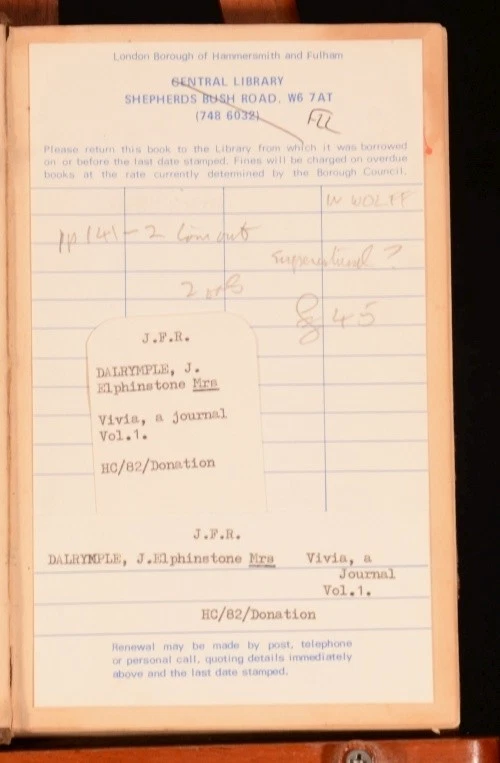 London Borough of Hammersmith and Fulham
CENTRAL LIBRARY
SHEPHERDS BUSH ROAD. W6 7AT
(748 6032)
Please return this book to the Library from which it was borrowed
on or before the last date stamped. Fines will be charged on overdue
books at the rate currently determined by the Borough Council.
W WOLFF
pp 141-2 Coming out
2 vols
45
J.F.R.
DALRYMPLE, J.
Elphinstone Mrs
Vivia, a journal
Vol.1.
HC/82/Donation
J.F.R.
DALRYMPLE, J.Elphinstone Mrs Vivia, a
Journal
Vol.1.
HC/82/Donation
Renewal may be made by post, telephone
or personal call, quoting details immediately
above and the last date stamped.